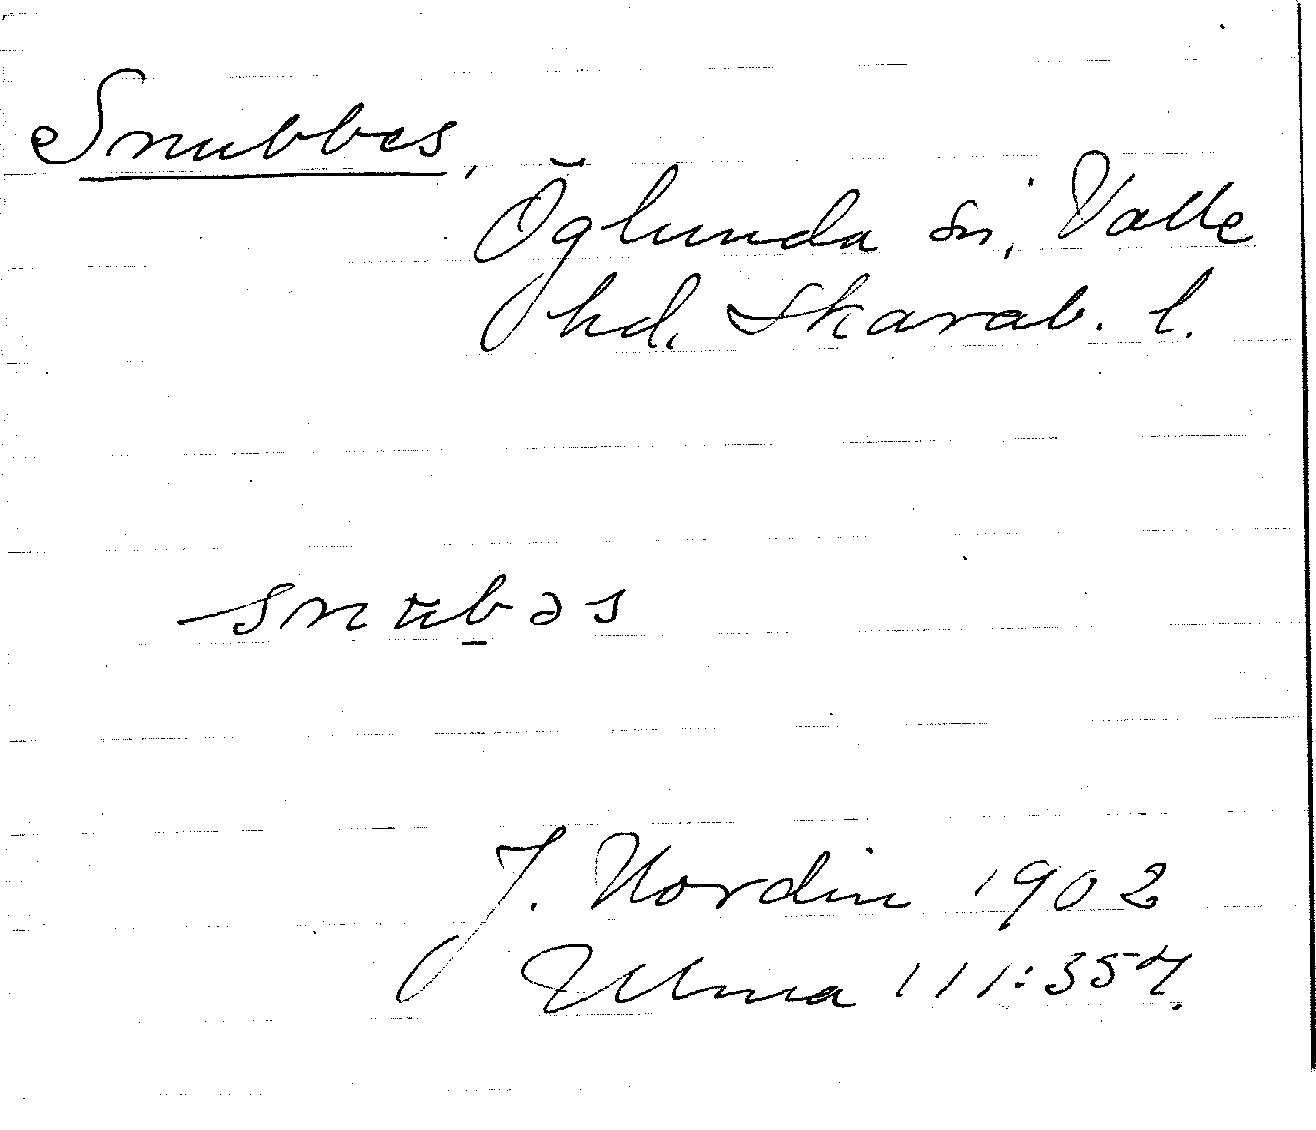 Snubbes,
Öglunda sn, Valle
hd. Skarab. l.
snub̲əs
J. Nordin 1902
Ulma 111:357.